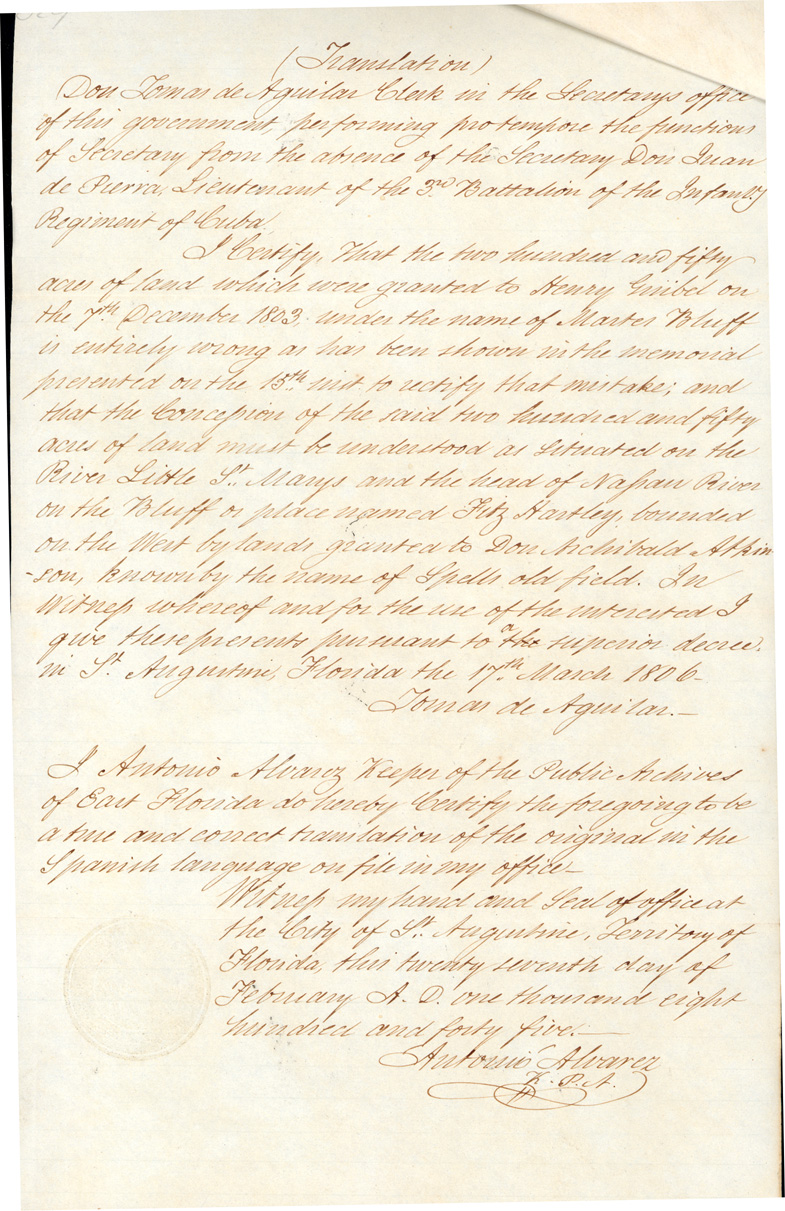 (Translation)
Don Tomas de Aguilar Clerk in the Secretarys office
of this government, performing protempore the functions
of Secretary from the absence of the Secretary Don Juan
de Pierra, Lieutenant of the 3rd Battalion of the Infantry
Regiment of Cuba.
I Certify, That the two hundred and fifty
acres of land which were granted to Henry Gnibel on
the 7th December 1803 under the name of Martes Bluff
is entirely wrong as has been shown in the memorial
presented on the 15th inst to rectify that mistake; and
that the Concession of the said two hundred and fifty
acres of land must be understood as situated on the
River Little St. Marys and the head of Nassau River
on the Bluff or place named Fitz Hartley, bounded
on the West by lands granted to Don Archibald Atkin-
-son, known by the name of Spells old field. In
Witness whereof and for the use of the interested I
give these presents pursuant to a the superior decree.
in St. Augustine, Florida the 17th March 1806-
Tomas de Aguilar.-
I Antonio Alvarez Keeper of the Public Archives
of East Florida do hereby Certify the foregoing to be
a true and correct translation of the original in the
Spanish language on file in my office-
Witness my hand and Seal of office at
the City of St. Augustine, Territory of
Florida, this twenty seventh day of
February A. D. one thousand eight
hundred and forty five.-
Antonio Alvarez
K. P. A.